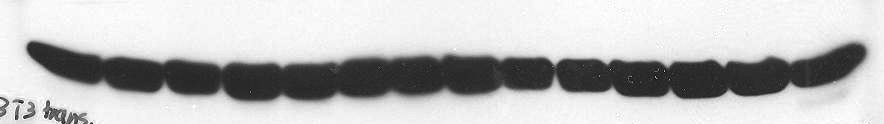 3T3 trans.